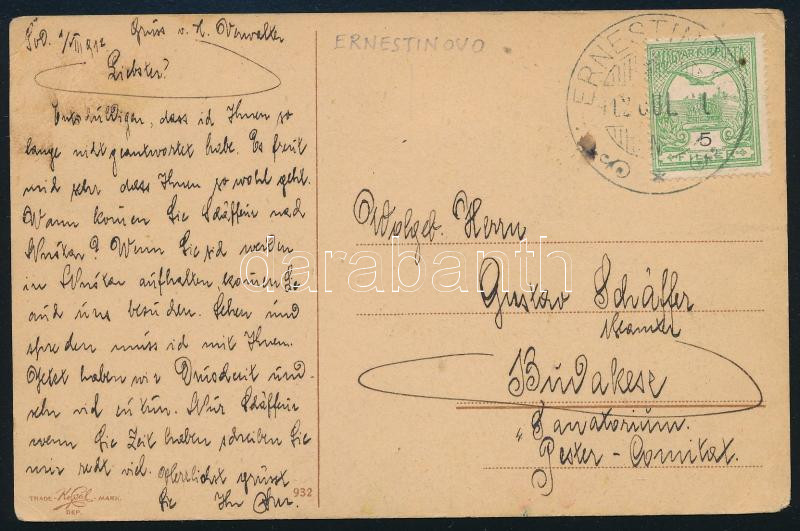 1/VII 912 Gruss v. H. Verwalter
Liebster!
Entschuldigen, dass ich Ihnen so
lange nicht geantwortet habe. Es freut
mich sehr dass Ihnen so wohl geht.
Wann komen Sie Schäffer nach
? Wenn Sie sich werden
in aufhalten, komen Sie
auch uns besuchen. Sehen und
sprechen muss ich mit Ihnen.
Jetzt haben wir Druschzeit und
sehr viel zu tun. Nur Schäffer
wenn Sie Zeit haben schreiben Sie
mir recht viel. Herzlichst grüsst
Sie Ihr
TRADE - MARK.
DEP.
932
ERNESTINOVO
ERNESTIN
912 JUL 1
MAGYAR KIR. POSTA
5
FILLÉR
Wolgeb. Herrn
Gustav Schäffer
Beamter
Budakesz
"Sanatorium.
Pester-Comitat.
darabanth